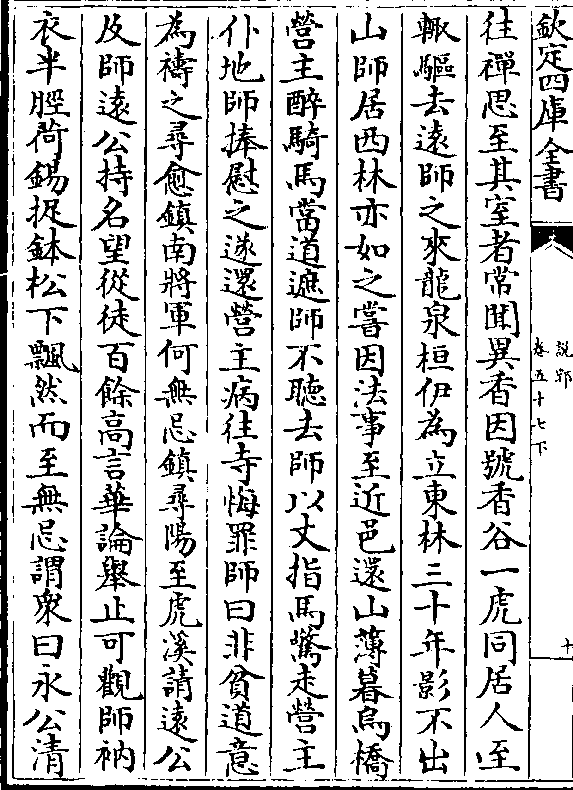 欽定四庫全書
說郛
卷五十七下
十
往禪思至其室者常聞異香因號香谷一虎同居人至
輙驅去遠師之來龍泉桓伊為立東林三十年影不出
山師居西林亦如之嘗因法事至近邑還山薄暮烏橋
營主醉騎馬當道遮師不聽去師以丈指馬驚走營主
仆地師捧慰之遂還營主病往寺悔罪師曰非貧道意
為禱之尋愈鎮南將軍何無忌鎮尋陽至虎溪請遠公
及師遠公持名望從徒百餘高言華論舉止可觀師衲
衣半脛荷錫捉鉢松下飄然而至無忌謂衆曰永公清